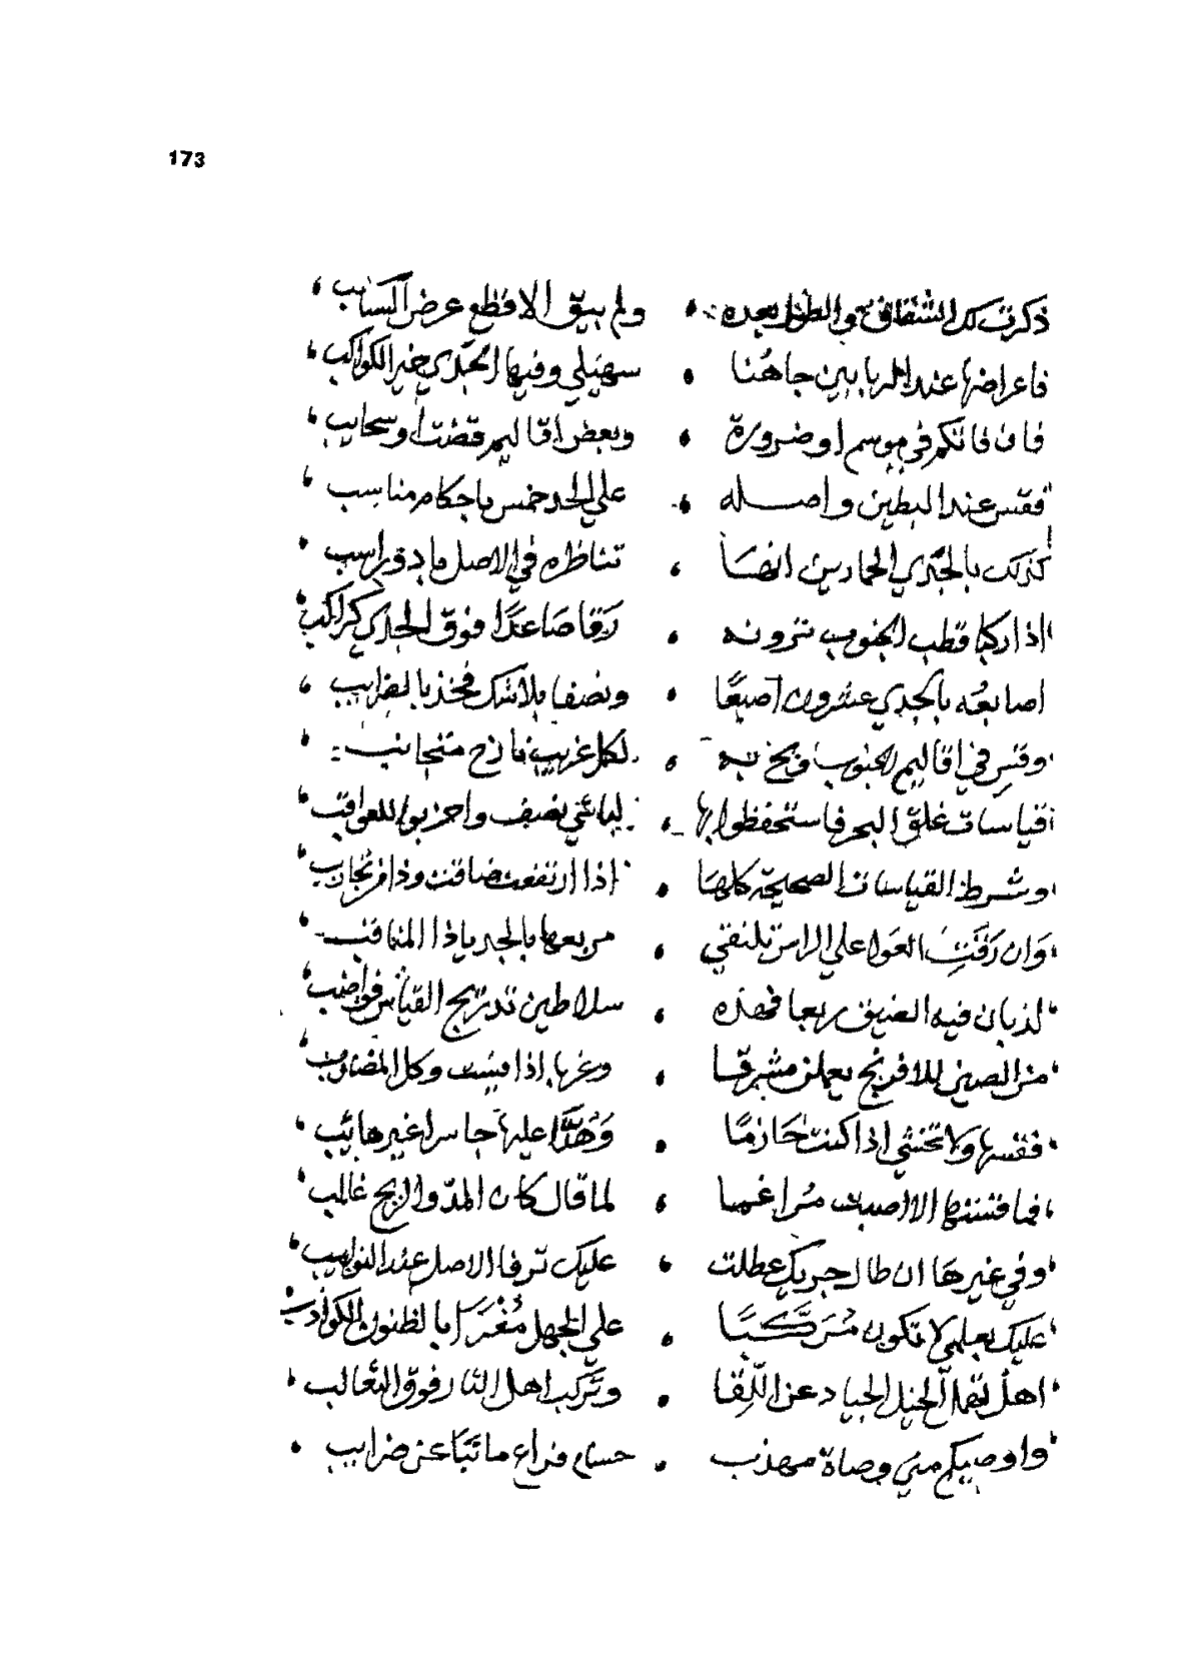 173
ذكرت لك الشقاق والطول بعده ولم يبق الا قطع عرض السباسب
فاعراضها عند المربا بين جاهنا سهيلي وفيها الجدي خير الكواكب
فان فاتكم في موسم او ضرورة وبعض اقاليم قضت او سحايب
فقس عند البطين واصله علي الحد خمس باحكام مناسب
كذلك بالجدي الحمارين ايضا تناظره في الاصل
اذا ركبا قطب الجنوب ترونه رقا صاعدًا فوق الجدي كراكب
اصابعه بالجدي عشرون اصبعًا ونصفا بلا شك فخذ بالضرايب
وقس في اقاليم الجنوب لكل غريب نازح متجانب
قياسات غلق البحر فاستحفظوا بها نصف واحزبوا للعواقب
وشرط القياسات الصحيحة كلها اذا ارتفعت ضاقت وذا من تجارب
وان رقت العوا علي الراس تلتقي مربعها بالجدي ياذا المناقب
لذبان فيه الضيق ربعا فهذه سلاطين تدريج القياس فواضب
من الصين للافرنج مشرقا وغربا اذا وكل المضارب
فقسها ولا تخشي اذا كنت حازمًا وهدا عليها جاسرا غير هايب
فما فتنتها الا اصبت مراغما لما قال كان المد والريح غالب
وفي غيرها ان طال جريك عطلت عليك ترفا الاصل عند النوايب
عليك بعلمي لا تكون مركبًا علي الجهل مغترا بالظنون الكواذب
اهل لقمان الخيل الجياد عن اللقا وتركب اهل النار فوق الثعالب
واوصيكم مني وصاة مهذب حسام قراع ما نبا عن ضرايب